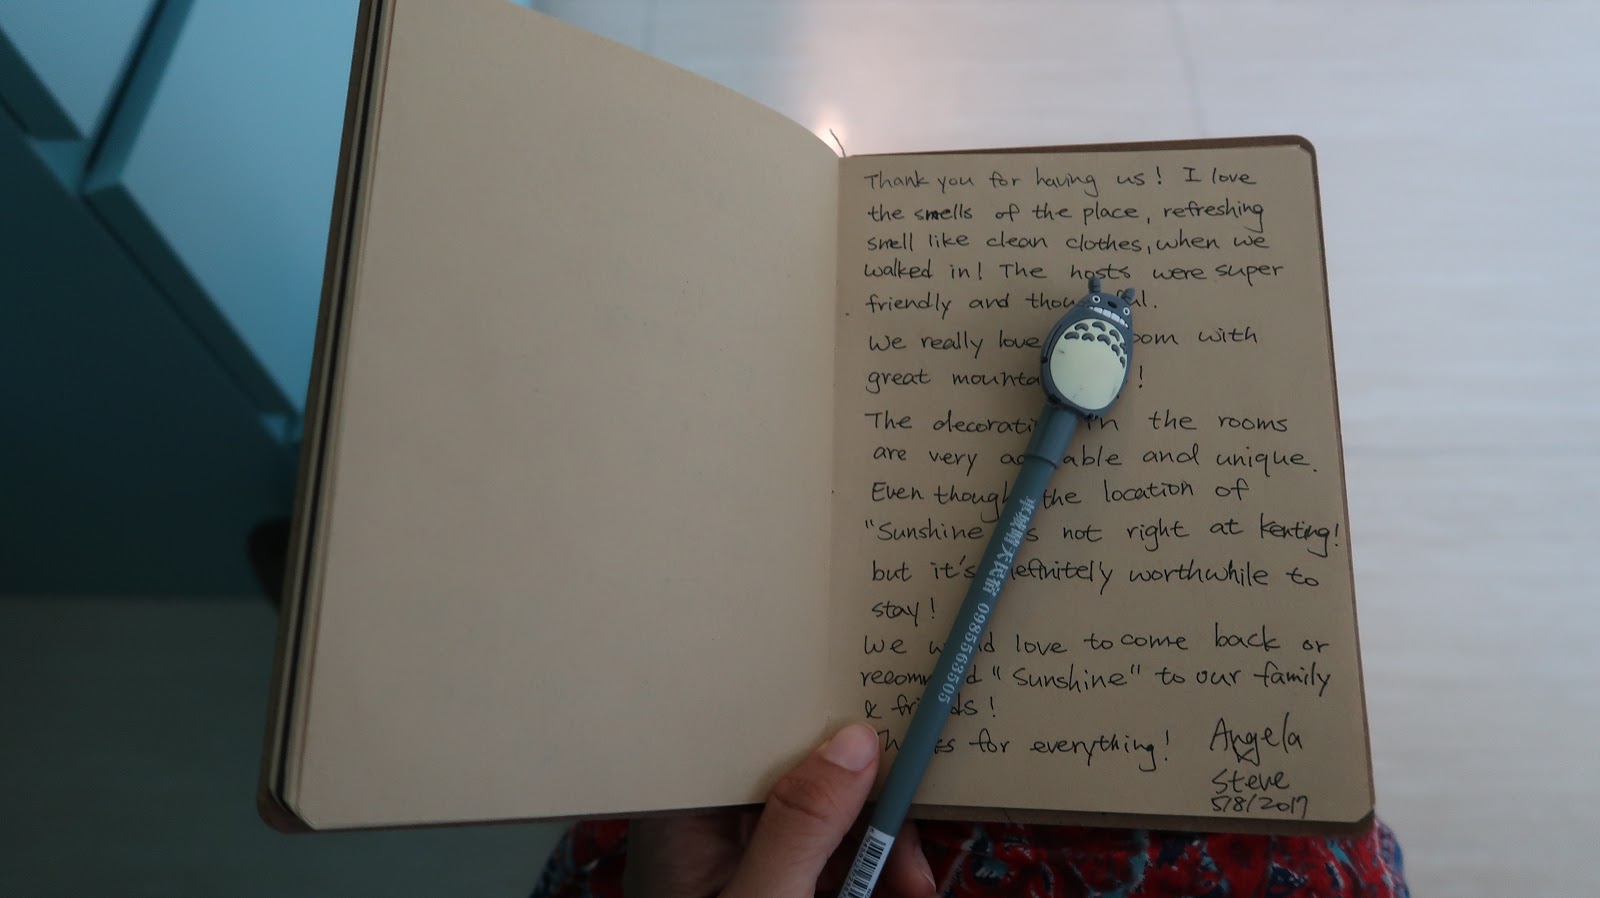 Thank you for having us! I love
the smells of the place, refreshing
smell like clean clothes, when we
walked in! The hosts were super
friendly and thoughtful.
We really love room with
great !
The in the rooms
are very adorable and unique.
Even though the location of
"Sunshine is not right at Kenting!
but it's definitely worthwhile to
stay!
We would love to come back or
recommend "Sunshine" to our family
& friends!
Thanks for everything! Angela
&
Steve
5/8/2017
天民宿 0985563505